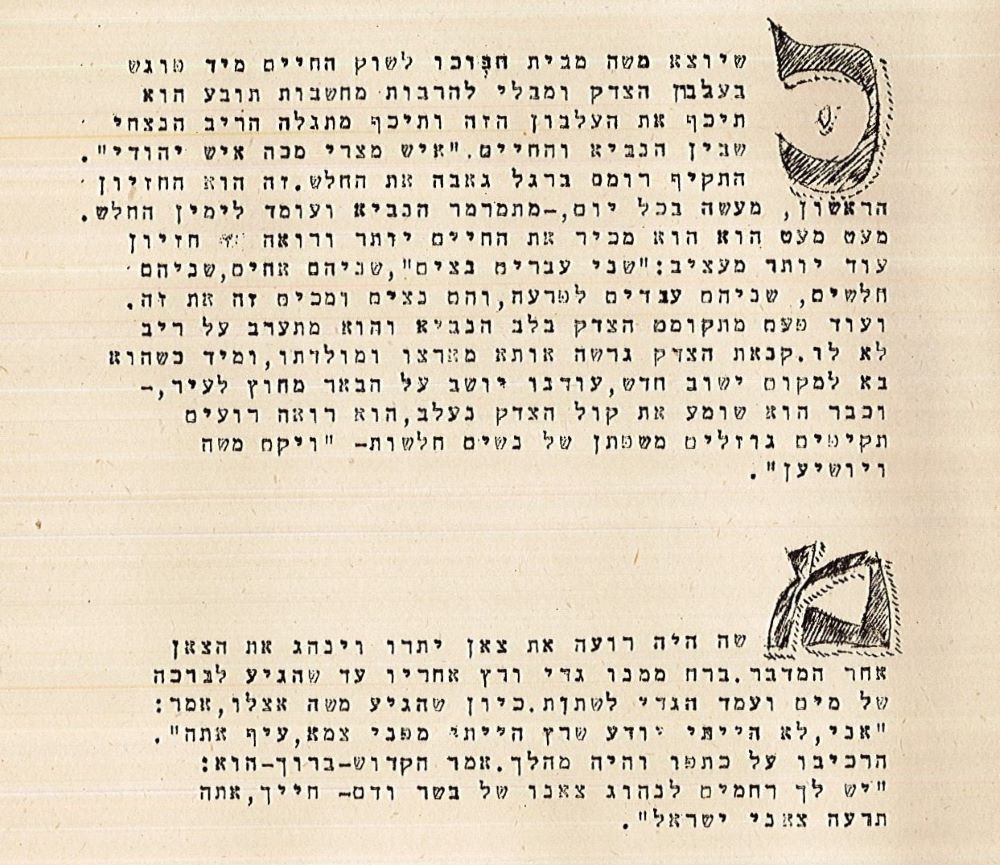 כשיוצא משה מבית חנוכו לשוק החיים מיד פוגש
בעלבון הצדק ומבלי להרבות מחשבות תובע הוא
תיכף את העלבון הזה ותיכף מתגלה הריב הנצחי
שבין הנביא והחיים."איש מצרי מכה איש יהודי".
התקיף רומס ברגל גאבה את החלש.זה הוא החזיון
הראשון, מעשה בכל יום,-מתמרמר הנביא ועומד לימין החלש.
מעט מעט הוא הוא מכיר את החיים יותר ורואה חזיון
עוד יותר מעציב:"שני עברים נצים",שניהם אחים,שניהם
חלשים, שניהם עבדים לפרעה,והם נצים ומכים זה את זה.
ועוד פעם מתקומם הצדק בלב הנביא והוא מתערב על ריב
לא לו.קנאת הצדק גרשה אותא מארצו ומולדתו,ומיד כשהוא
בא למקום ישוב חדש,עודנו יושב על הבאר מחוץ לעיר,-
וכבר הוא שומע את קול הצדק נעלב,הוא רואה רועים
תקיפים גוזלים משפתן של נשים חלשות- "ויקם משה
ויושיען".
משה היה רועה את צאן יתרו וינהג את הצאן
אחר המדבר.ברח ממנו גדי ורץ אחריו עד שהגיע לברכה
של מים ועמד הגדי לשתות.כיון שהגיע משה אצלו,אמר:
"אני,לא הייתי יודע שרץ הייתי מפני צמא,עיף אתה".
הרכיבו על כתפו והיה מהלך.אמר הקדוש-ברוך-הוא:
"יש לך רחמים לנהוג צאנו של בשר ודם- חייך,אתה
תרעה צאני ישראל".